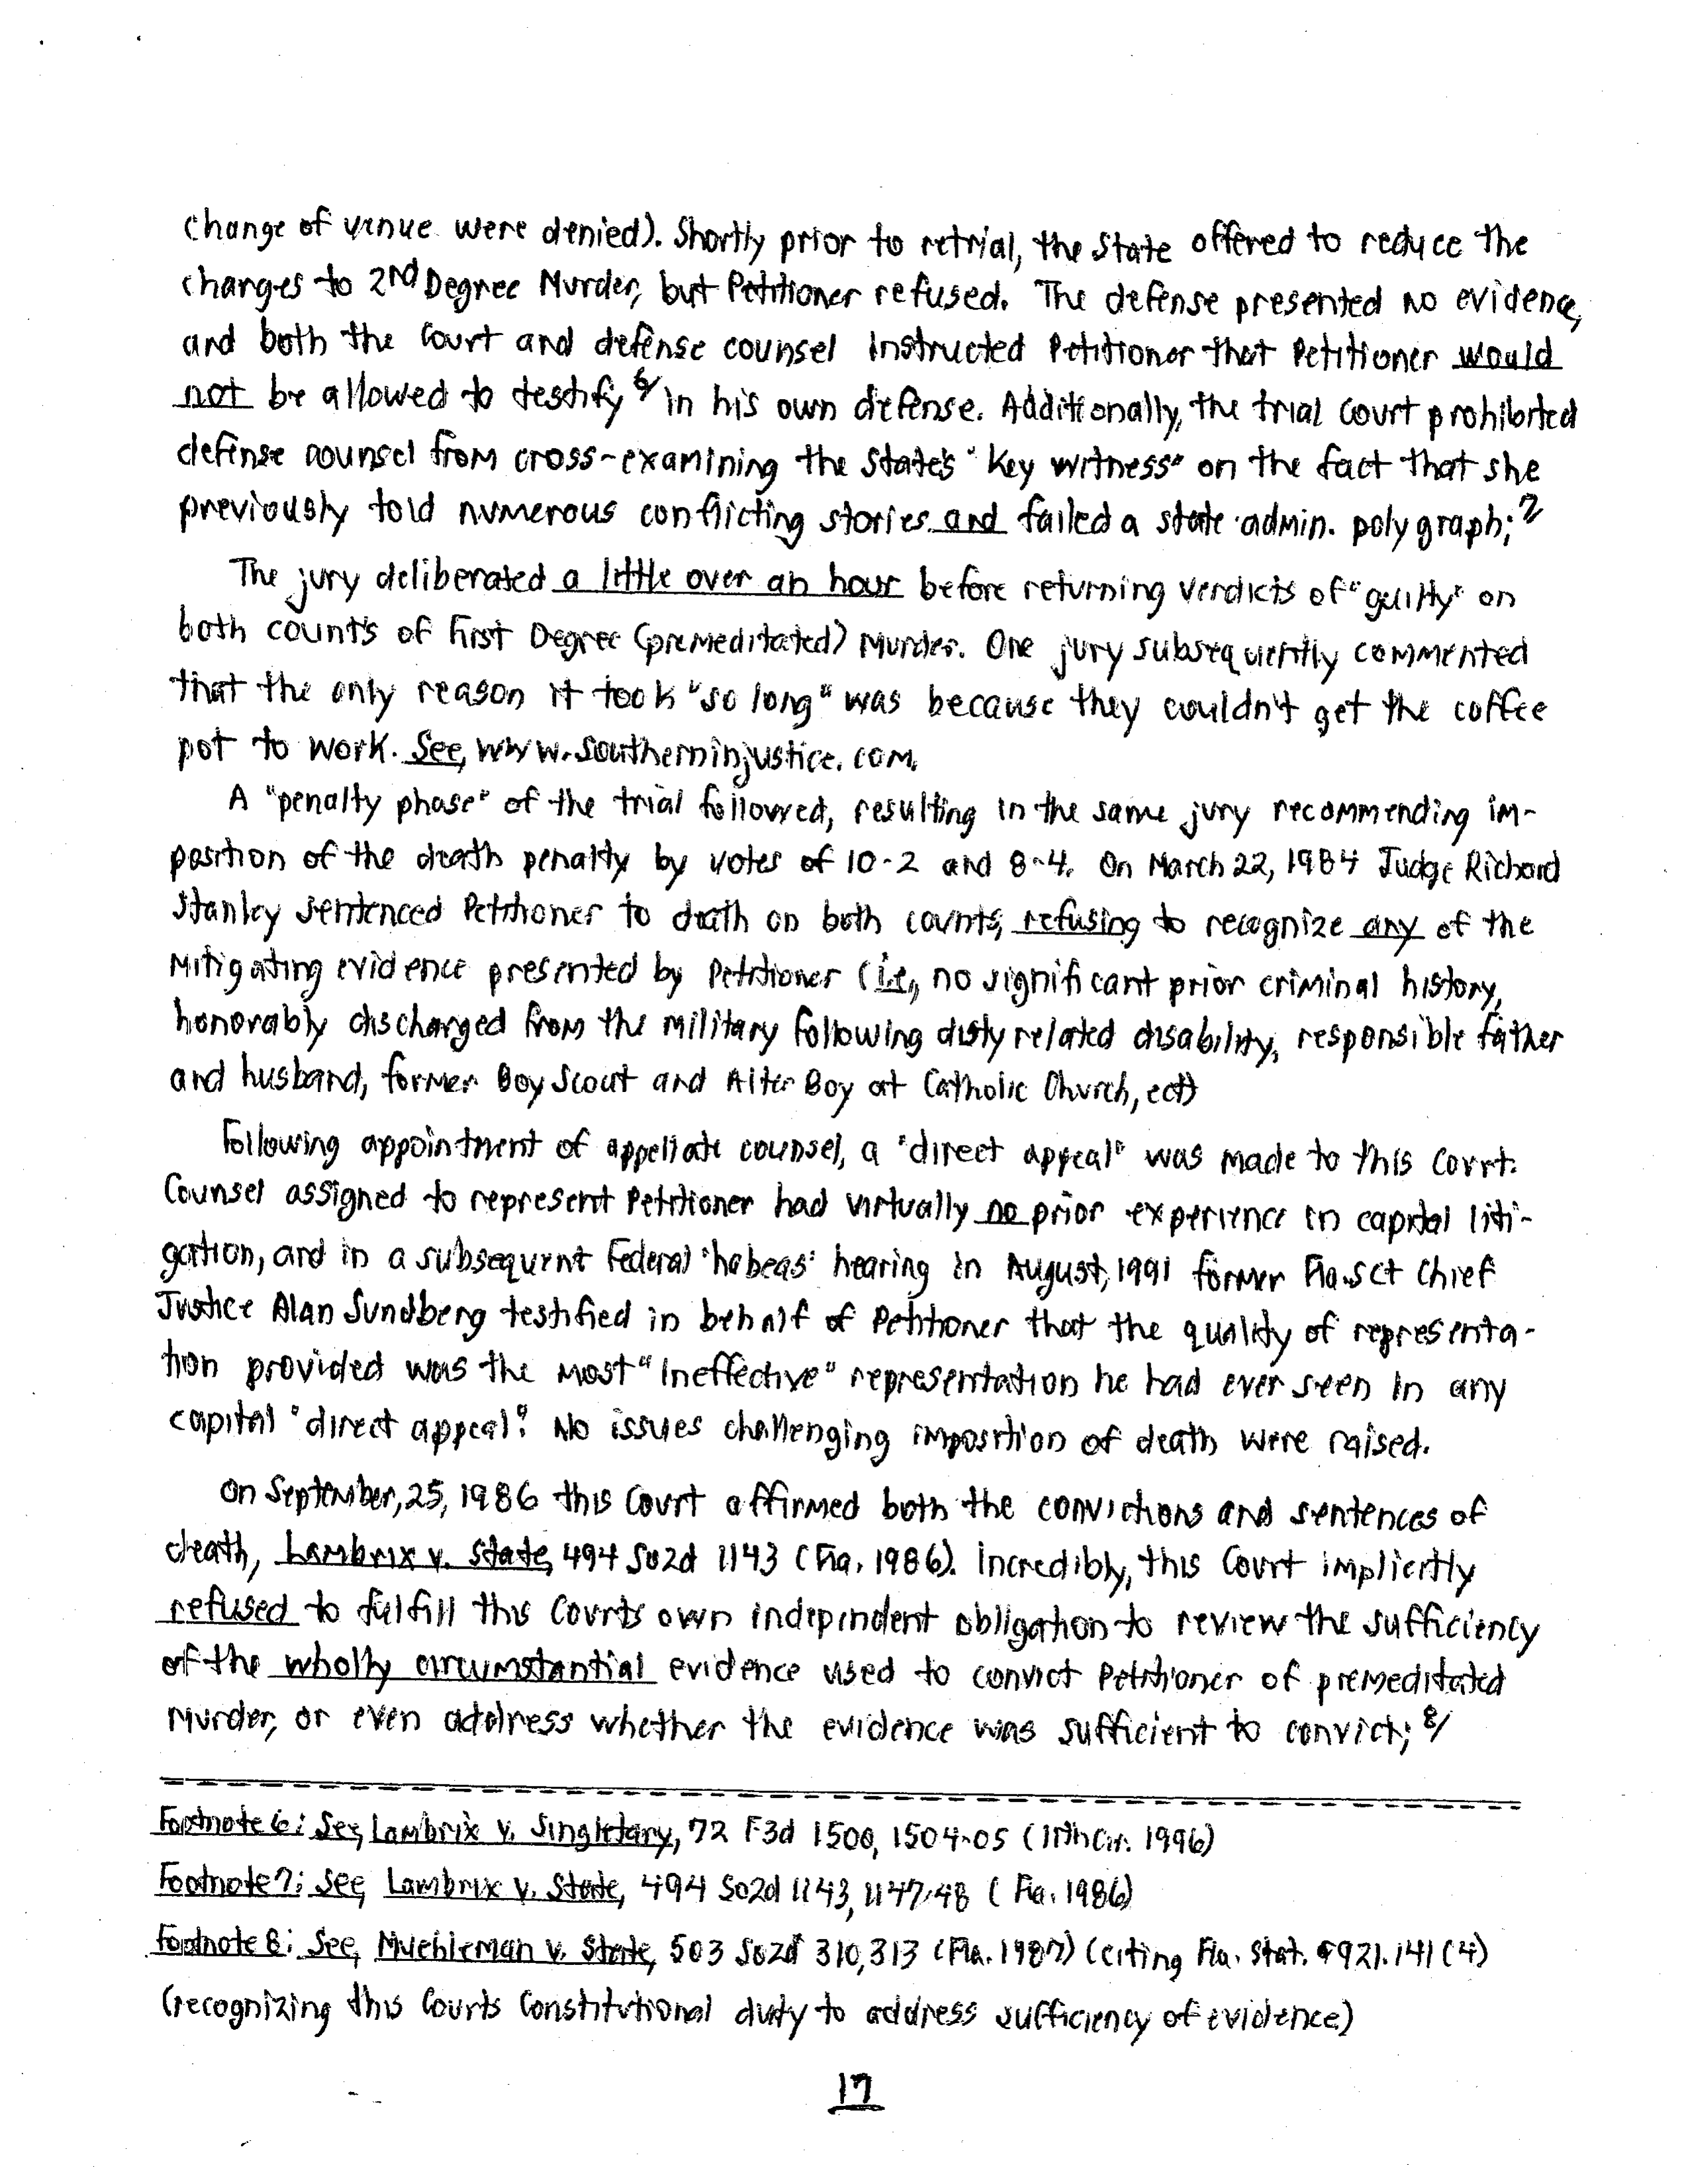 change of venue were denied). Shortly prior to retrial, the State offered to reduce the
charges to 2nd Degree Murder, but Petitioner refused. The defense presented no evidence,
and both the Court and defense counsel instructed Petitioner that Petitioner would
not be allowed to testify 6/ in his own defense. Additionally, the trial court prohibited
defense counsel from cross-examining the State's "Key witness" on the fact that she
previously told numerous conflicting stories and failed a state admin. polygraph; 7
The jury deliberated a little over an hour before returning verdicts of "guilty" on
both counts of First Degree (premeditated) Murder. One jury subsequently commented
that the only reason it took "so long" was because they couldn't get the coffee
pot to work. See, www.southerninjustice.com.
A "penalty phase" of the trial followed, resulting in the same jury recommending im-
position of the death penalty by votes of 10-2 and 8-4. On March 22, 1984 Judge Richard
Stanley sentenced Petitioner to death on both counts, refusing to recognize any of the
mitigating evidence presented by Petitioner (i.e., no significant prior criminal history,
honorably discharged from the military following duty related disability, responsible father
and husband, former Boy Scout and Alter Boy at Catholic Church, ect)
Following appointment of appellate counsel, a "direct appeal" was made to this Court.
Counsel assigned to represent Petitioner had virtually no prior experience in capital liti-
gation, and in a subsequent Federal "habeas" hearing in August, 1991 former Fla.Sct Chief
Justice Alan Sundberg testified in behalf of Petitioner that the quality of representa-
tion provided was the most "ineffective" representation he had ever seen in any
capital "direct appeal". No issues challenging imposition of death were raised.
On September, 25, 1986 this Court affirmed both the convictions and sentences of
death, Lambrix v. State, 494 So2d 1143 (Fla. 1986). Incredibly, this Court implicitly
refused to fulfill this Courts own independent obligation to review the sufficiency
of the wholly circumstantial evidence used to convict Petitioner of premeditated
Murder, or even address whether the evidence was sufficient to convict; 8/
Footnote 6: See, Lambrix v. Singletary, 72 F3d 1500, 1504-05 (11th Cir. 1996)
Footnote 7: See, Lambrix v. State, 494 So2d 1143, 1147-48 (Fla. 1986)
Footnote 8: See, Muehleman v. State, 503 So2d 310, 313 (Fla. 1987) (citing Fla. Stat. §921.141(4)
(recognizing this Courts Constitutional duty to address sufficiency of evidence)
17